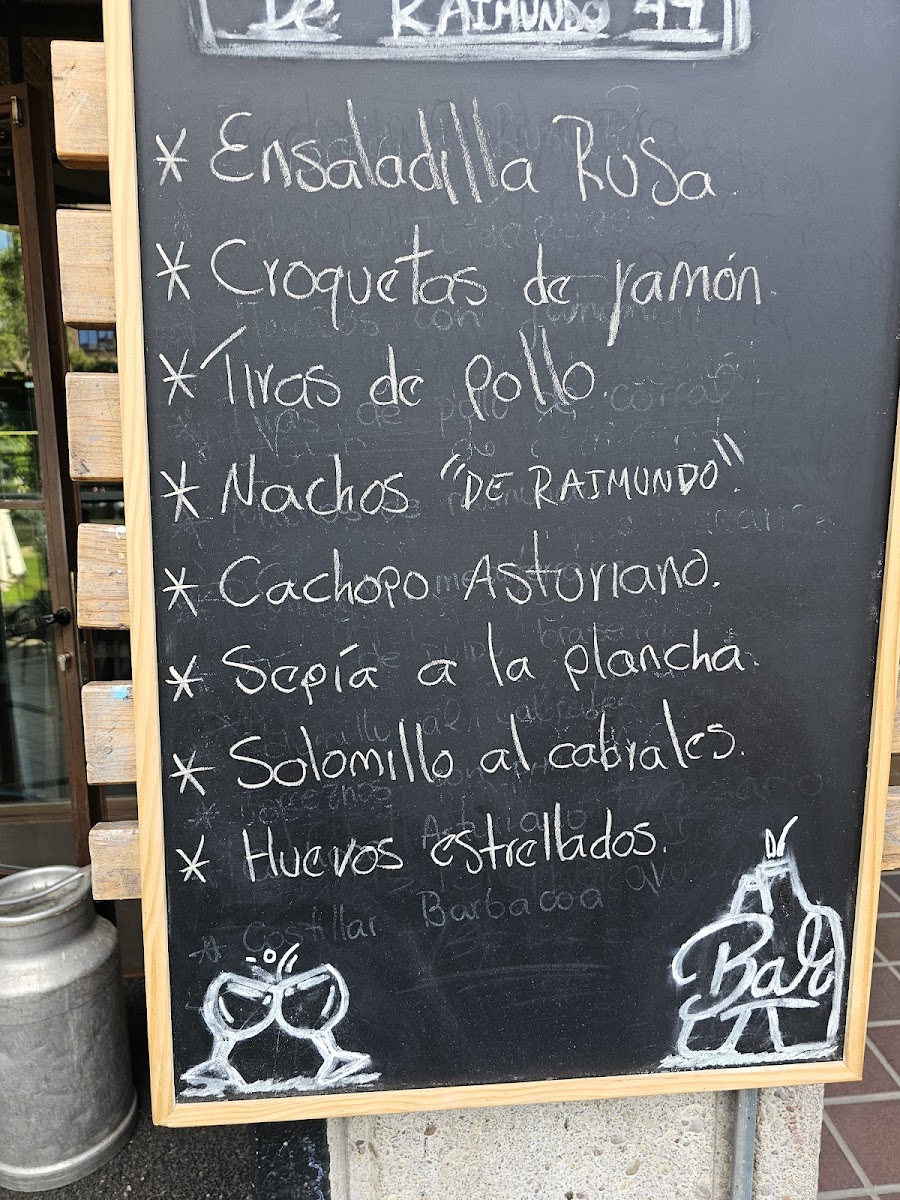 De RAIMUNDO 44
* Ensaladilla Rusa.
* Croquetas de jamón.
* Tiras de pollo.
* Nachos "DE RAIMUNDO".
* Cachopo Asturiano.
* Sepía a la plancha.
* Solomillo al cabrales.
* Huevos estrellados.
* Costillar Barbacoa
Bar